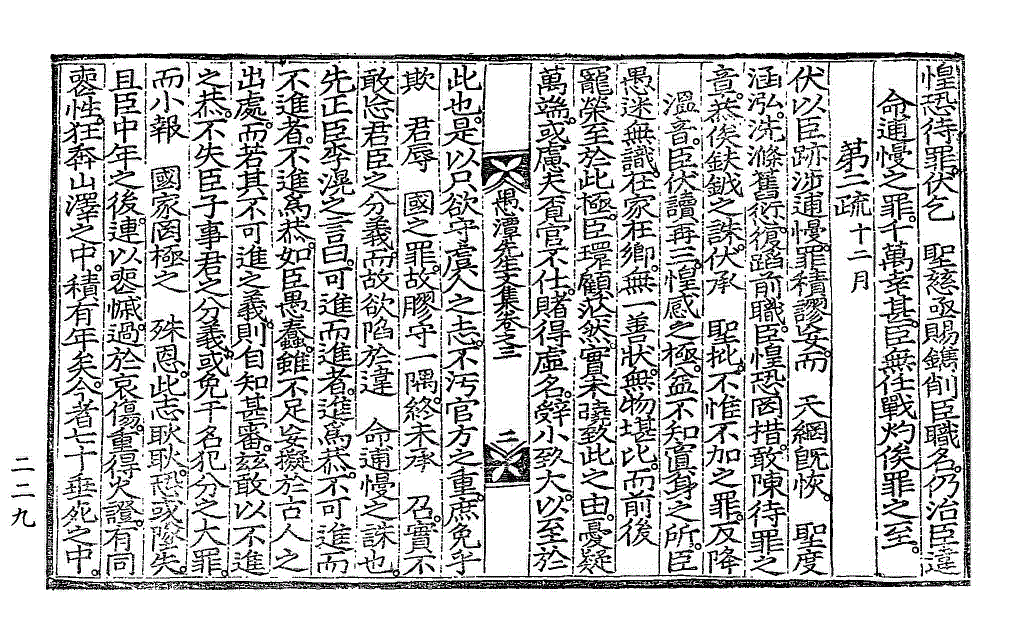 惶恐待罪。伏乞　聖慈亟賜鐫削臣職名。仍治臣違
命逋慢之罪。千萬幸甚。臣無任戰灼俟罪之至。
第二疏 十二月
伏以臣跡涉逋慢。罪積謬妄。而　天網旣恢。　聖度
涵泓。洗滌舊衍。復蹈前職。臣惶恐罔措。敢陳待罪之
音。恭俟鈇鉞之誅。伏承　聖批。不惟不加之罪。反降
溫音。臣伏讀再三。惶感之極。益不知寘身之所。臣
愚迷無識。在家在鄕。無一善狀。無物堪比。而前後
寵榮。至於此極。臣環顧茫然。實未曉致此之由。憂疑
萬端。或慮夫覓官不仕。賭得虛名。辭小致大。以至於
愚潭先生文集卷之三　二
此也。是以只欲守虞人之志。不汚官方之重。庶免乎
欺　君辱　國之罪。故膠守一隅。終未承　召。實不
敢忘君臣之分義。而故欲陷於違　命逋慢之誅也。
先正臣李滉之言曰。可進而進者。進爲恭。不可進而
不進者。不進爲恭。如臣愚蠢。雖不足妄擬於古人之
出處。而若其不可進之義。則自知甚審。玆敢以不進
之恭。不失臣子事君之分義。或免干名犯分之大罪。
而小報　國家罔極之　殊恩。此志耿耿。恐或隊失。
且臣中年之後。連以喪慽。過於哀傷。重得火證。有同
喪性。狂奔山澤之中。積有年矣。今者七十垂死之中。
二二九